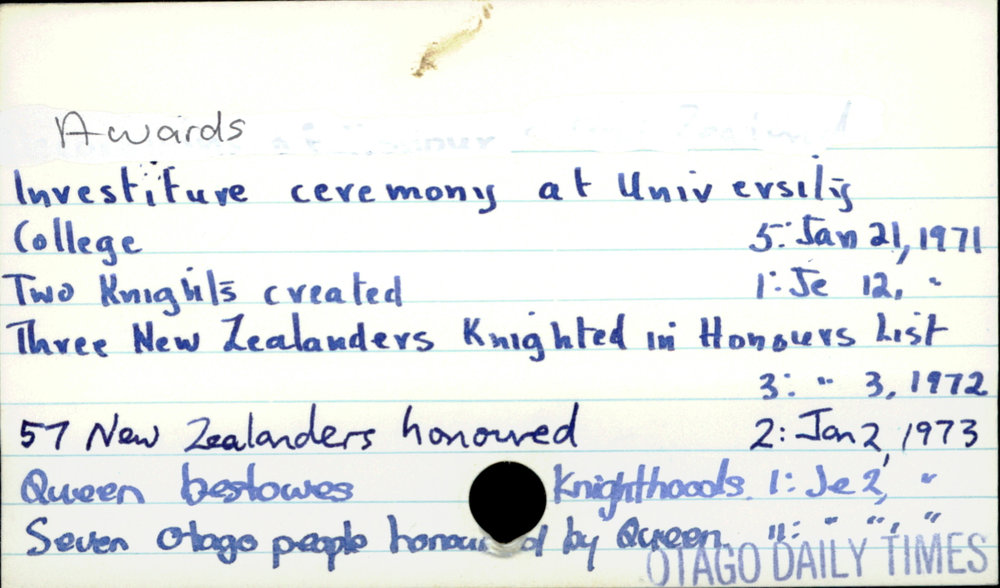 Awards
Investiture ceremony at University
College 5: Jan 21, 1971
Two Knights created 1: Je 12, "
Three New Zealanders Knighted in Honours List
3: " 3, 1972
57 New Zealanders honoured 2: Jan 2, 1973
Queen bestowes Knighthoods. 1: Je 2, "
Seven Otago people honoured by Queen. ": " ", "
OTAGO DAILY TIMES